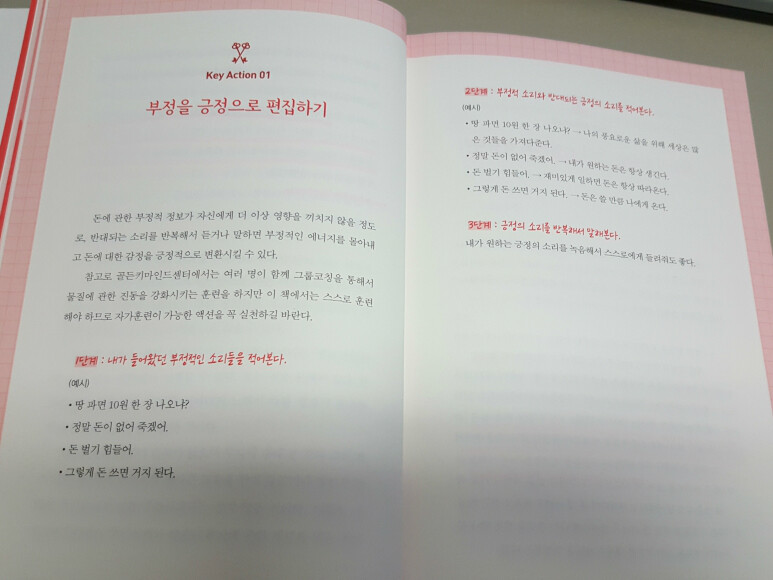 Key Action 01
부정을 긍정으로 편집하기
돈에 관한 부정적 정보가 자신에게 더 이상 영향을 끼치지 않을 정도
로, 반대되는 소리를 반복해서 듣거나 말하면 부정적인 에너지를 몰아내
고 돈에 대한 감정을 긍정적으로 변환시킬 수 있다.
참고로 골든키마인드센터에서는 여러 명이 함께 그룹코칭을 통해서
물질에 관한 진동을 강화시키는 훈련을 하지만 이 책에서는 스스로 훈련
해야 하므로 자가훈련이 가능한 액션을 꼭 실천하길 바란다.
1단계 : 내가 들어왔던 부정적인 소리들을 적어본다.
(예시)
• 땅 파면 10원 한 장 나오냐?
• 정말 돈이 없어 죽겠어.
• 돈 벌기 힘들어.
• 그렇게 돈 쓰면 거지 된다.
2단계 : 부정적 소리와 반대되는 긍정의 소리를 적어본다.
(예시)
• 땅 파면 10원 한 장 나오냐? → 나의 풍요로운 삶을 위해 세상은 많
은 것들을 가져다준다.
• 정말 돈이 없어 죽겠어. → 내가 원하는 돈은 항상 생긴다.
• 돈 벌기 힘들어. → 재미있게 일하면 돈은 항상 따라온다.
• 그렇게 돈 쓰면 거지 된다. → 돈은 쓸 만큼 나에게 온다.
3단계 : 긍정의 소리를 반복해서 말해본다.
내가 원하는 긍정의 소리를 녹음해서 스스로에게 들려줘도 좋다.